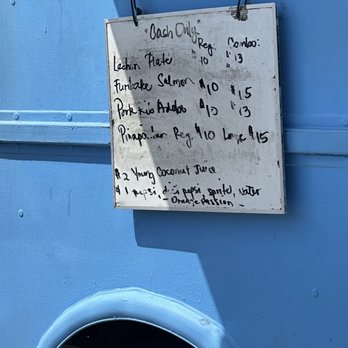 "Cash Only"
Reg. Combo:
Lechon Plate $10 $13
Furikake Salmon $10 $15
Pork Adobo $10 $13
Reg. $10 Large $15
$2 Young Coconut Juice
$1 pepsi, diet pepsi, sprite, water